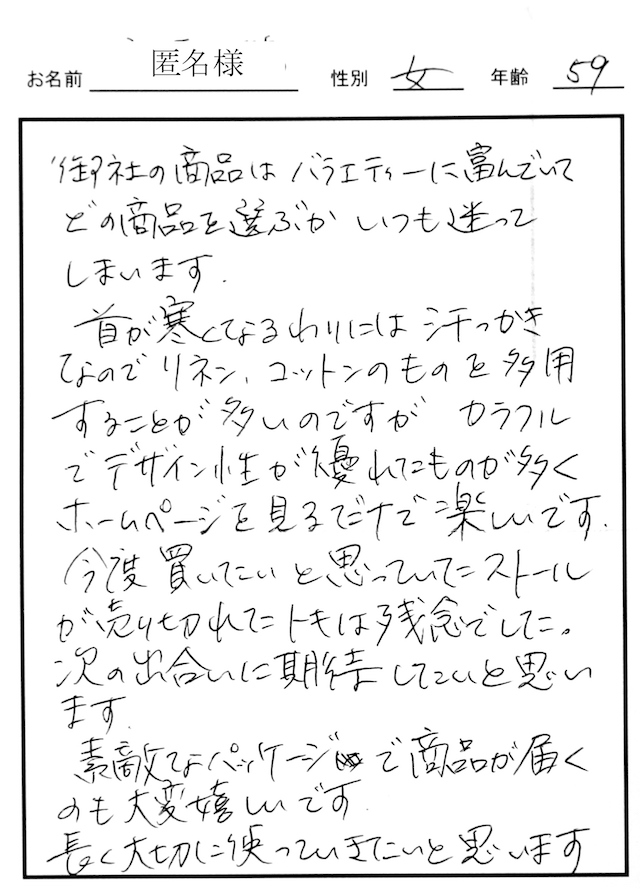 お名前 匿名様 性別 女 年齢 59
御社の商品はバラエティーに富んでいて
どの商品を選ぶか いつも迷って
しまいます.
首が寒くなるわりには汗っかき
なのでリネン、コットンのものを多用
することが多いのですが カラフル
でデザイン性が優れたものが多く
ホームページを見るだけで楽しいです.
今度買いたいと思っていたストール
が売り切れたトキは残念でした。
次の出合いに期待したいと思い
ます.
素敵なパッケージで商品が届く
のも大変嬉しいです
長く大切に使っていきたいと思います